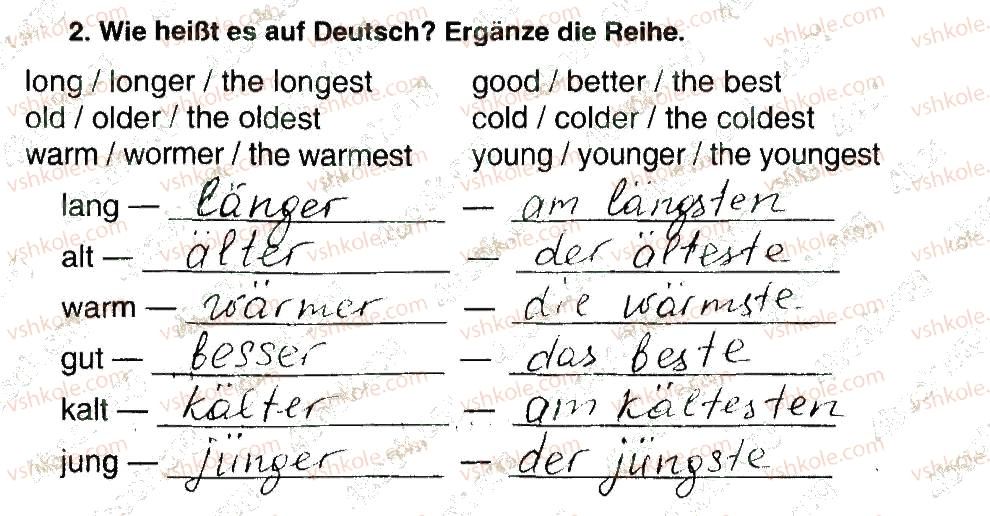 2. Wie heißt es auf Deutsch? Ergänze die Reihe.
long / longer / the longest good / better / the best
old / older / the oldest cold / colder / the coldest
warm / wormer / the warmest young / younger / the youngest
lang — länger — am längsten
alt — älter — der älteste
warm — wärmer — die wärmste
gut — besser — das beste
kalt — kälter — am kältesten
jung — jünger — der jüngste